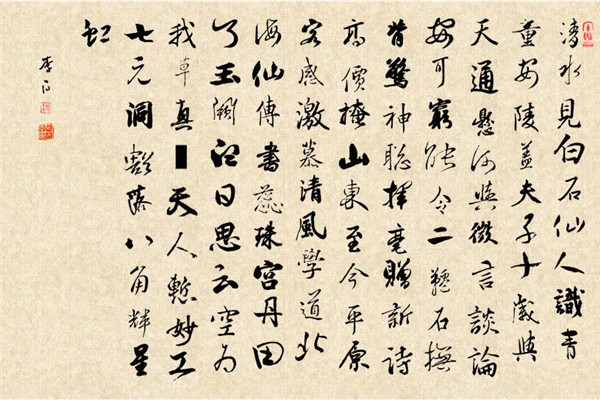 清水見白石仙人識青
童安陵蓋夫子十歲與
天通懸河與微言談論
安可窮能令二韆石撫
背驚神聡揮毫贈新詩
高價掩山東至今平原
客感激慕清風學道北
海仙傳書蕊珠宮丹田
了玉闕白日思云空為
我草真天人慙妙工
七元洞豁落八角輝星
虹
李白